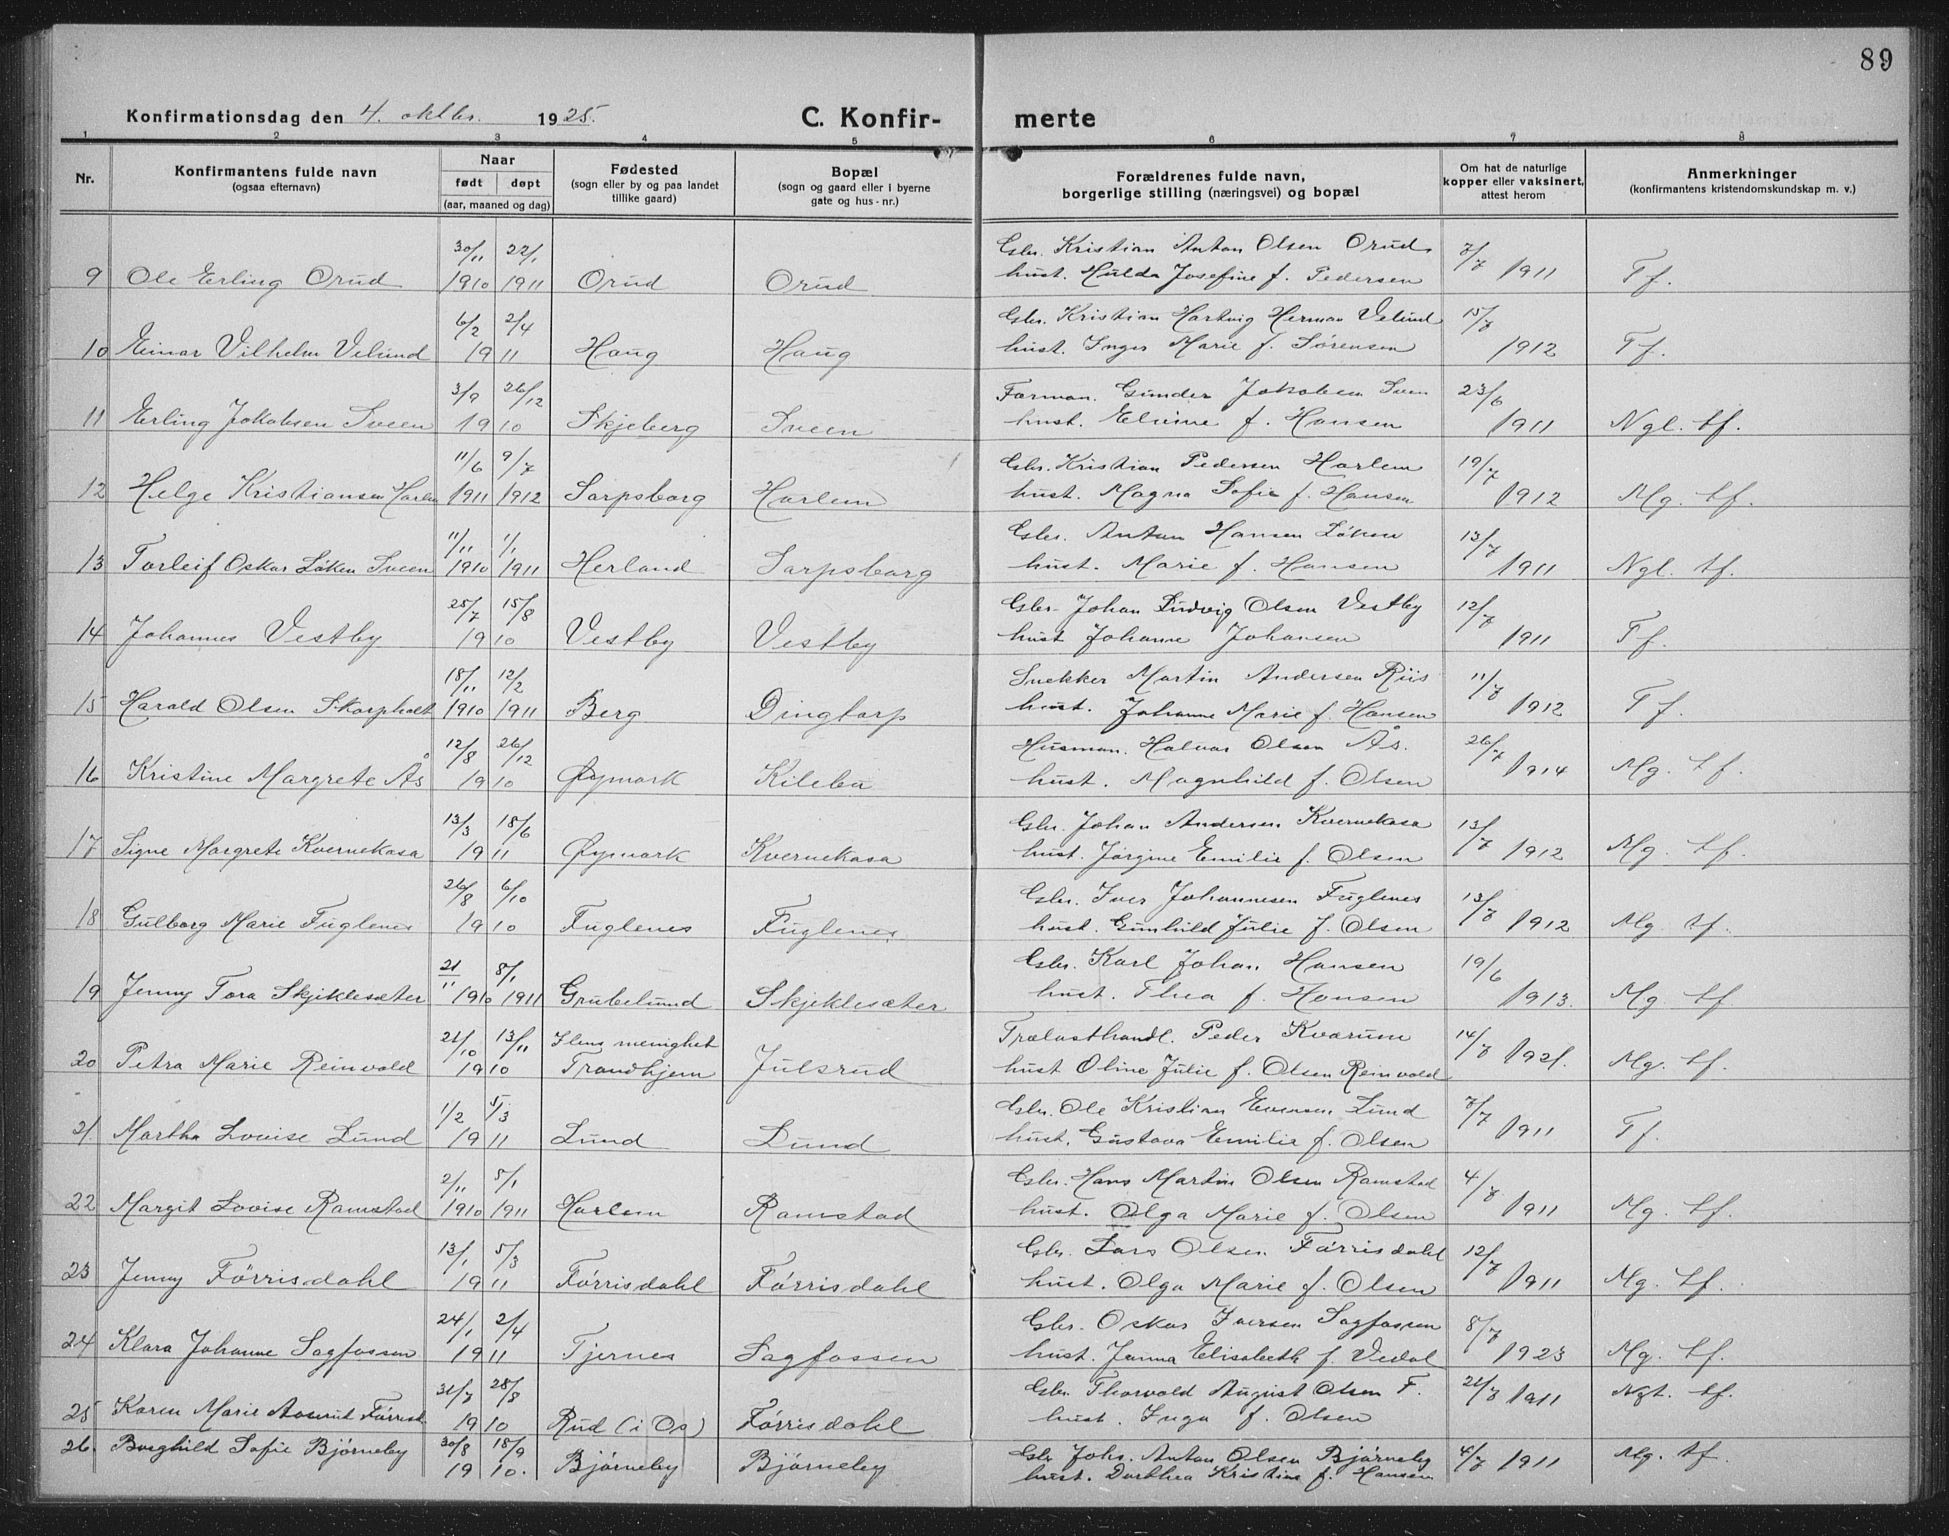 89
Konfirmationsdag den 4. oktbr. 1925. C. Konfir- merte
1 2 3 4 5 6 7 8
Nr. Konfirmantens fulde navn (ogsaa efternavn) Naar født døpt (aar, maaned og dag) Fødested (sogn eller by og paa landet tillike gaard) Bopæl (sogn og gaard eller i byerne gate og hus-nr.) Forældrenes fulde navn, borgerlige stilling (næringsvei) og bopæl Om hat de naturlige kopper eller vaksinert, attest herom Anmerkninger (konfirmantens kristendomskundskap m. v.)
30/11 22/1 Gbr. Kristian Anton Olsen Orud 7/7
9 Ole Erling Orud 1910 1911 Orud Orud hust. Hulda Josefine f. Pedersen 1911 Tf.
6/2 2/4 Gbr. Kristian Hartvig Herman Velund 15/7
10 Einar Vilhelm Velund 1911 Haug Haug hust. Inger Marie f. Sørensen 1912 Tf.
3/9 26/12 Forman. Gunder Jakobsen Sveen 23/6
11 Erling Jakobsen Sveen 1910 Skjeberg Sveen hust. Elvine f. Hansen 1911 Ngl. tf.
11/6 9/7 Gbr. Kristian Pedersen Harlem 19/7
12 Helge Kristiansen Harlem 1911 1912 Sarpsborg Harlem hust. Magna Sofie f. Hansen 1912 Mg. tf.
11/11 1/1 Gbr. Anton Hansen Løken 13/7
13 Torleif Oskar Løken Sveen 1910 1911 Herland Sarpsborg hust. Marie f. Hansen 1911 Ngl. tf.
25/7 15/8 Gbr. Johan Ludvig Olsen Vestby 12/7
14 Johannes Vestby 1910 Vestby Vestby hust Johanne Johansen 1911 Tf.
18/11 12/2 Snekker Martin Andersen Riis 11/7
15 Harald Olsen Skorpholt 1910 1911 Berg Dingtorp hust. Johanne Marie f. Hansen 1912 Tf.
12/8 26/12 Husman. Halvor Olsen Ås. 26/7
16 Kristine Margrete Ås 1910 Øymark Kilebu hust. Magnhild f. Olsen 1914 Mg. tf.
13/3 18/6 Gbr. Johan Andersen Kvernekasa 13/7
17 Signe Margrete Kvernekasa 1911 Øymark Kvernekasa hust. Jørgine Emilie f. Olsen 1912 Mg. tf.
26/8 6/10 Gbr. Iver Johannesen Fuglenes 13/7
18 Gulborg Marie Fuglenes 1910 Fuglenes Fuglenes hust. Gunhild Julie f. Olsen 1912 Mg. tf.
21/11 8/1 Gbr. Karl Johan Hansen 19/6
19 Jenny Tora Skjiklesæter 1910 1911 Grubelund Skjeklesæter hust. Thea f. Hansen 1913. Mg. tf.
21/10 13/11 Ilens menighet Trælasthandl. Peder Kvarum 14/7
20 Petra Marie Reinvold 1910 Trondhjem Julsrud hust Oline Julie f. Olsen Reinvold 1921. Mg. tf.
1/2 5/3 Gbr. Ole Kristian Evensen Lund 7/7
21 Martha Lovise Lund 1911 Lund Lund hust. Gustava Emilie f. Olsen 1911 Tf.
2/11 5/1 Gbr. Hans Martin Olsen Ramstad 4/7
22 Margit Lovise Ramstad 1910 1911 Harlem Ramstad hust. Olga Marie f. Olsen 1911 Mg. tf.
13/1 5/3 Gbr. Lars Olsen Førrisdahl 12/7
23 Jenny Førrisdahl 1911 Førrisdahl Førrisdahl hust. Olga Marie f. Olsen 1911 Mg. tf.
24/1 2/4 Gbr. Oskar Iversen Sagfossen 8/7
24 Klara Johanne Sagfossen 1911 Tjernes Sagfossen hust. Janna Elisabeth f. Vedal 1923 Mg. tf.
31/7 28/8 Gbr. Thorvald August Olsen F. 21/7 1911 Ngt. tf.
25 Karen Marie 1910 Rud (i Os) Førrisdahl hust. Inga f. Olsen
26. Borghild Sofie Bjørneby 30/8 18/9 Gbr Johs. Anton Olsen Bjørneby 4/7 1911 Mg. tf.
1910. Bjørneby Bjørneby hust. Dorthea Kristine f. Hansen